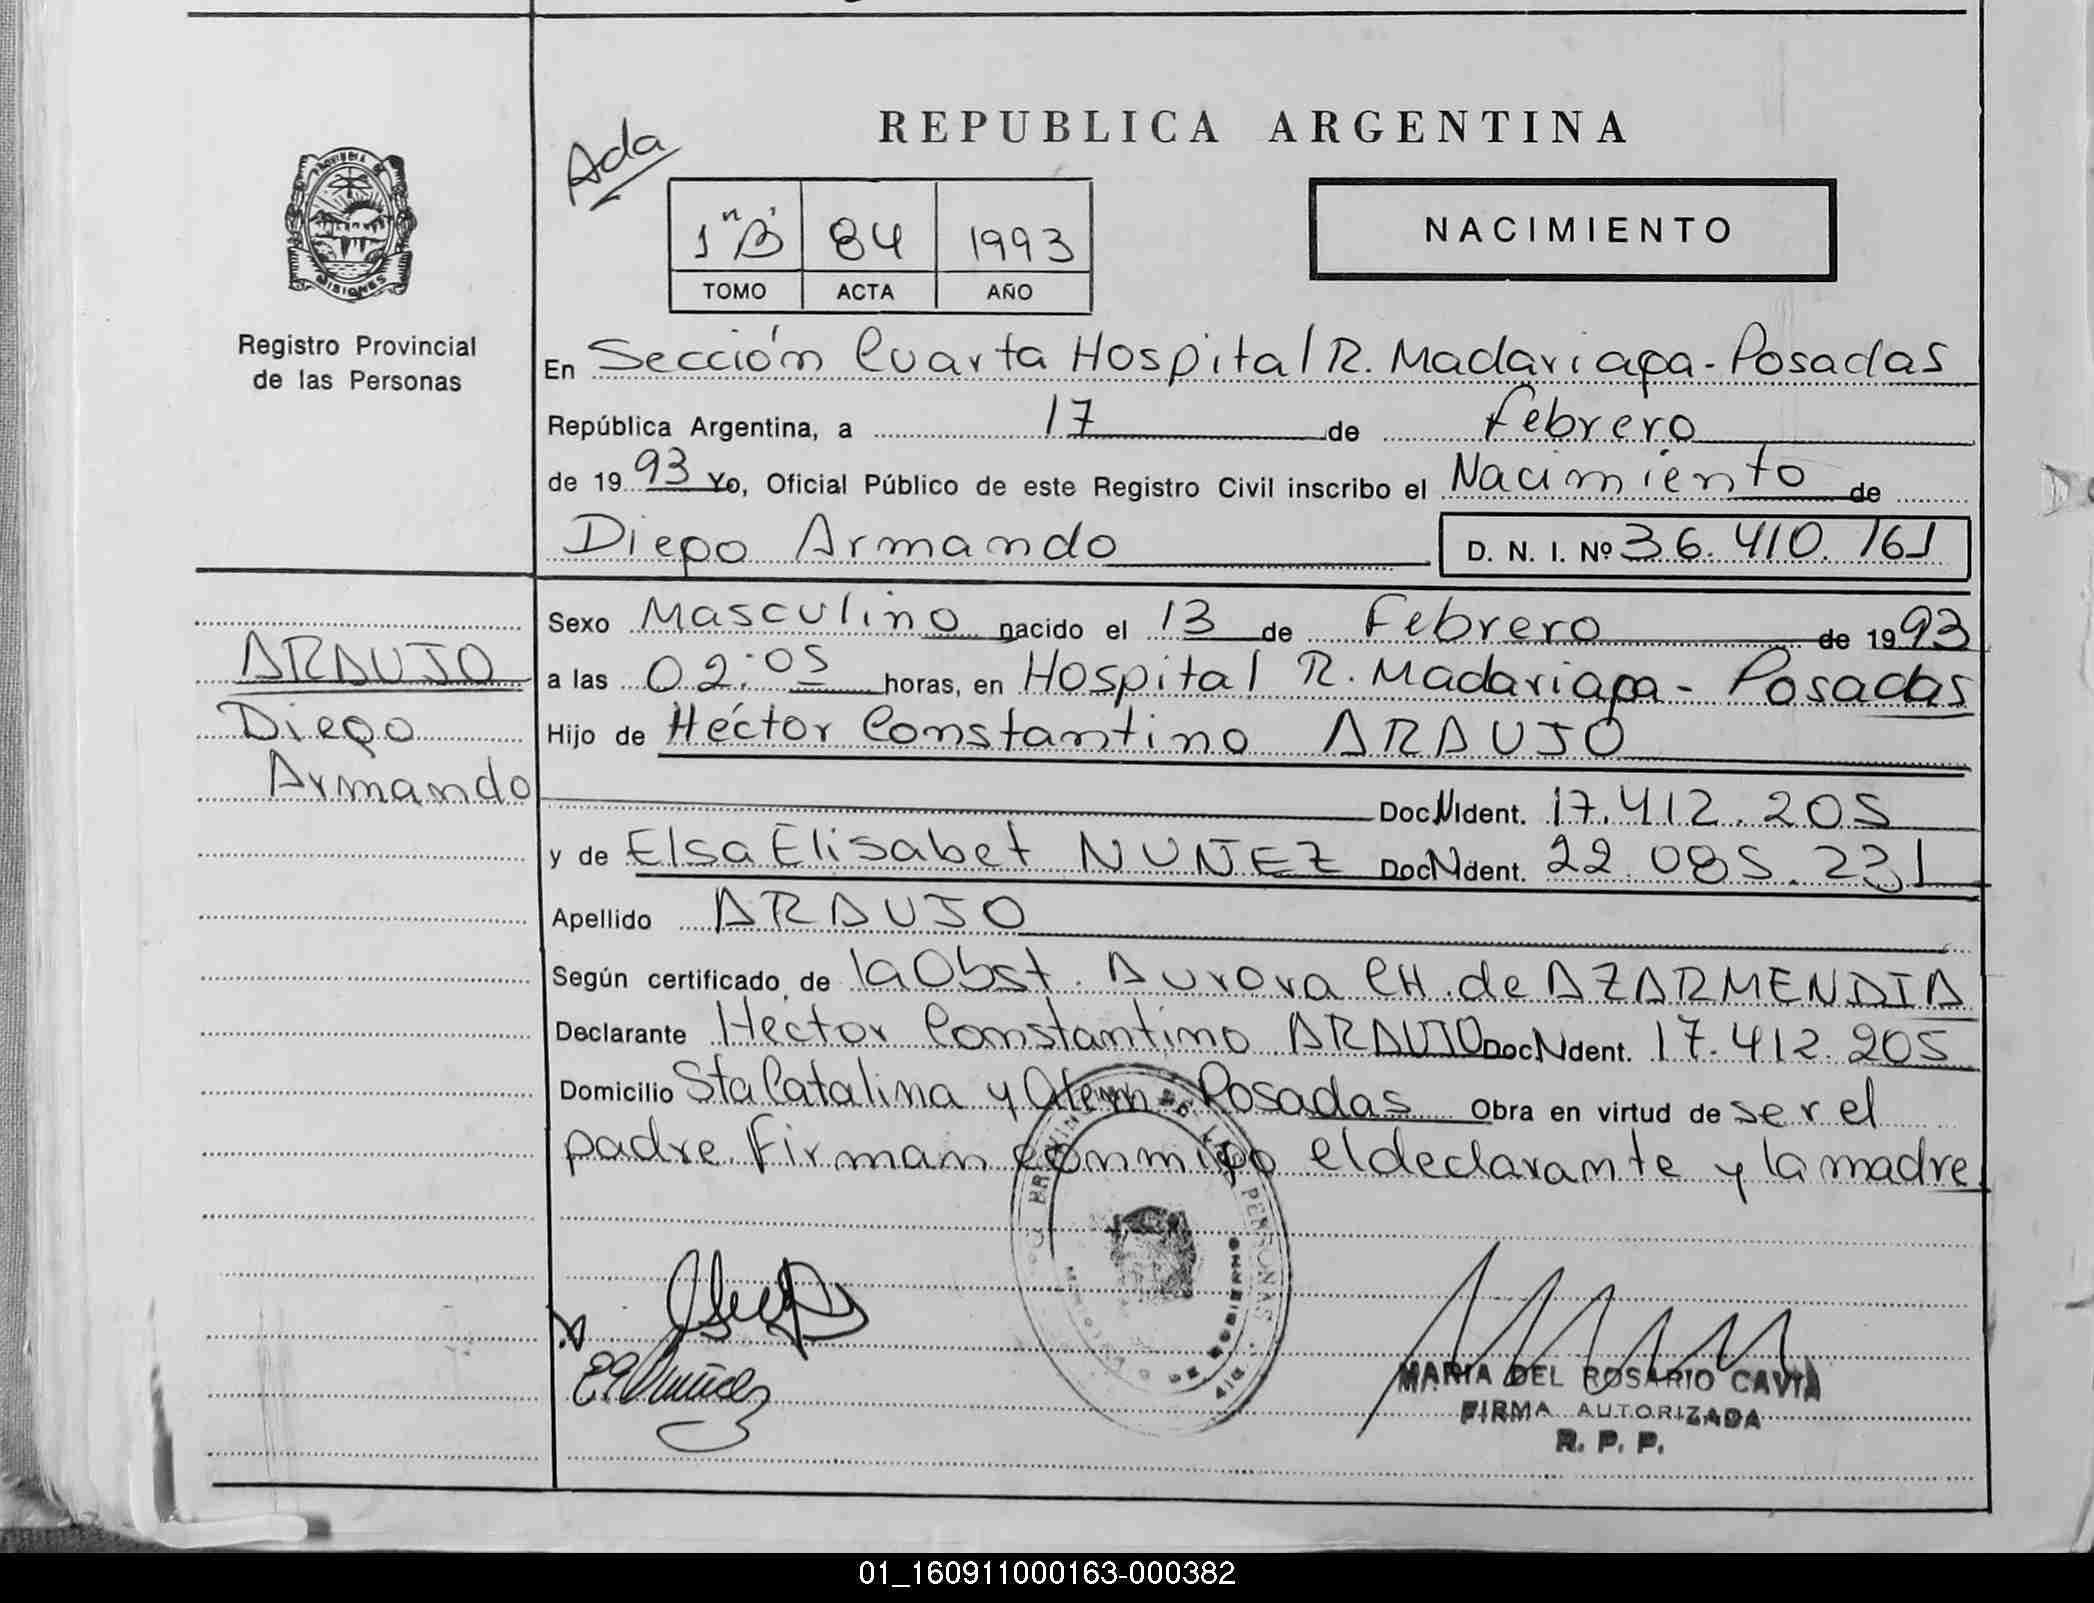 REPUBLICA ARGENTINA
Ada
1 "B"
84
1993
TOMO
ACTA
AÑO
NACIMIENTO
PROVINCIA DE
MISIONES
Registro Provincial
de las Personas
En Sección Cuarta Hospital R. Madariaga - Posadas
República Argentina, a 17 de Febrero
de 1993 Yo, Oficial Público de este Registro Civil inscribo el Nacimiento de
Diego Armando
D. N. I. Nº 36.410.161
ARAUJO
Diego
Armando
Sexo Masculino nacido el 13 de Febrero de 1993
a las 02:05 horas, en Hospital R. Madariaga - Posadas
Hijo de Héctor Constantino ARAUJO
Doc N Ident. 17.412.205
y de Elsa Elisabet NUÑEZ Doc N Ident. 22.085.231
Apellido ARAUJO
Según certificado de la Obst. Aurora CH. de AZARMENDIA
Declarante Hector Constantino ARAUJO Doc N Ident. 17.412.205
Domicilio Sta Catalina y Alem - Posadas Obra en virtud de ser el
padre. Firman conmigo el declarante y la madre.
DE LAS PERSONAS
DE GOBIERNO
E E Nuñez
MARIA DEL ROSARIO CAVIA
FIRMA AUTORIZADA
R. P. P.
01_160911000163-000382